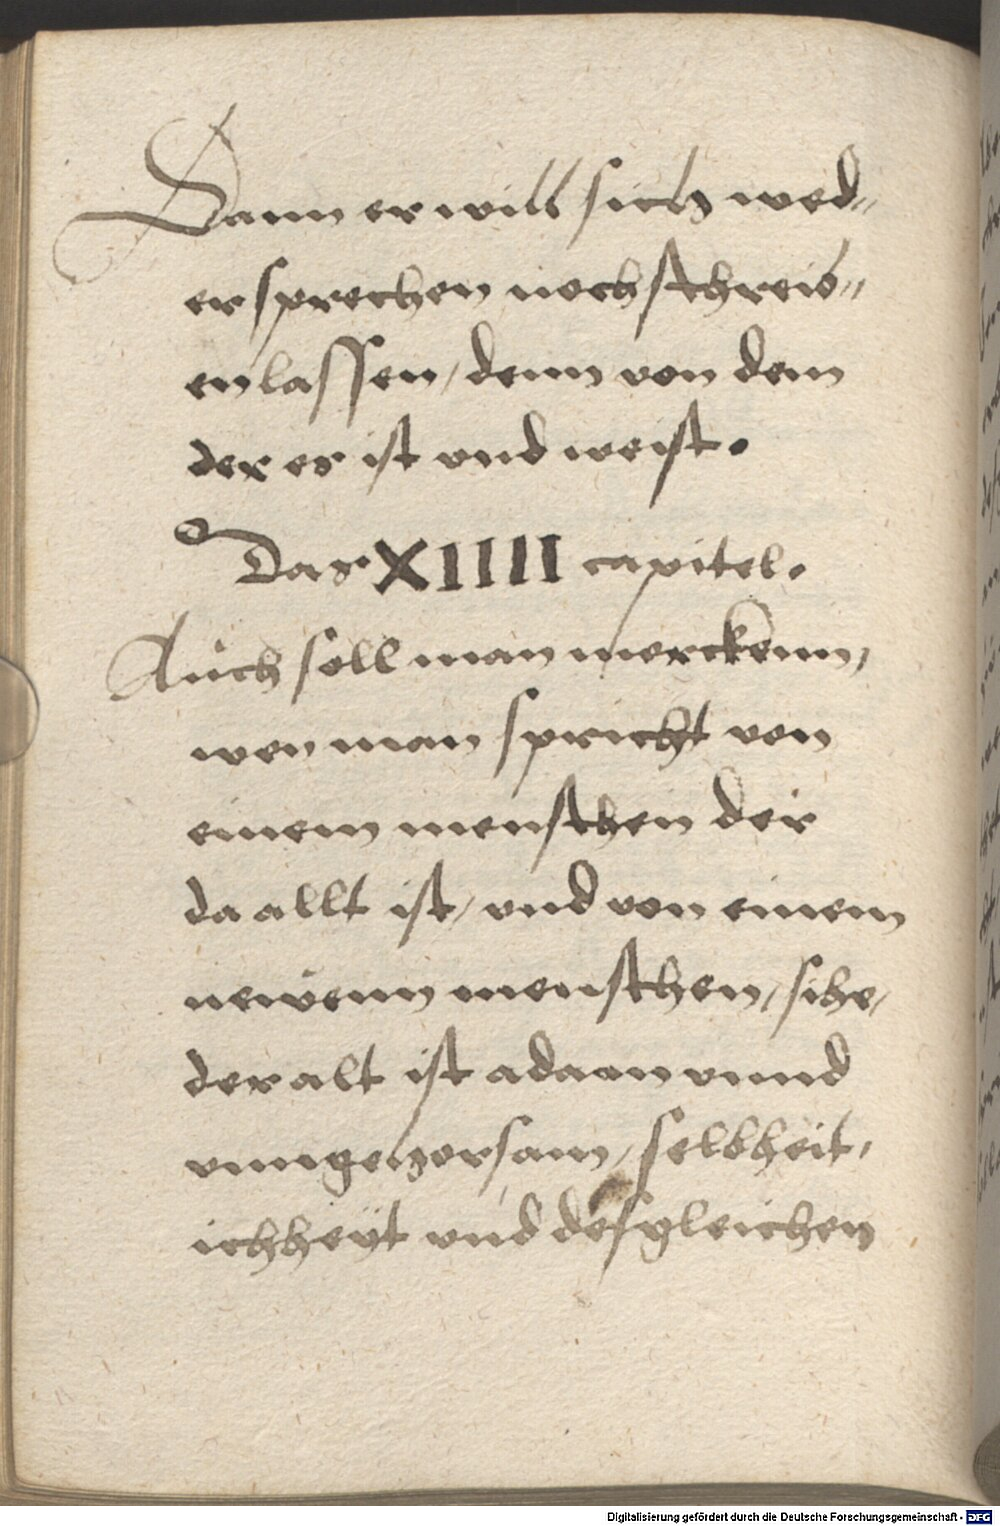 Dann er will sich wed=
er sprechen noch schreib=
en lassen / denn von dem
der es ist vnd weist.
Das XIIII capitel.
Auch soll man merckenn,
wen man spricht von
einem menschen der
da allt ist / vnd von einem
newenn menschen / sihe /
der alt ist adam vnnd
vnngehorsam / selbheit,
ichheÿt vnd desgleichen
Digitalisierung gefördert durch die Deutsche Forschungsgemeinschaft - DFG